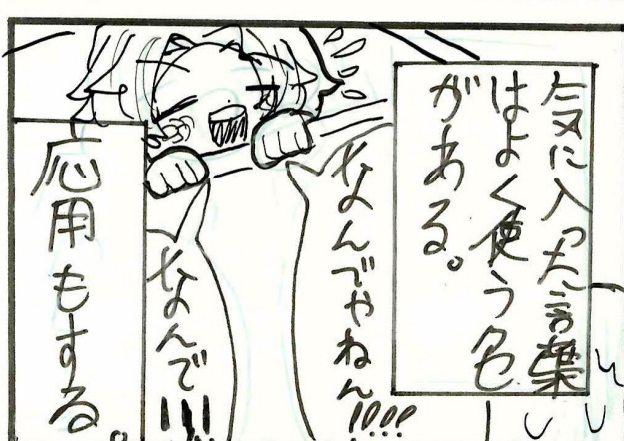 気に入った言葉
はよく使う色
がある。
なんでやねん!!!!
なんで!!!
応用もする。